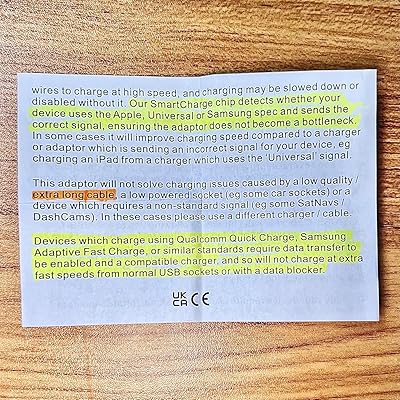 wires to charge at high speed, and charging may be slowed down or
disabled without it. Our SmartCharge chip detects whether your
device uses the Apple, Universal or Samsung spec and sends the
correct signal, ensuring the adaptor does not become a bottleneck.
In some cases it will improve charging speed compared to a charger
or adaptor which is sending an incorrect signal for your device, eg
charging an iPad from a charger which uses the 'Universal' signal.
This adaptor will not solve charging issues caused by a low quality /
extra long cable, a low powered socket (eg some car sockets) or a
device which requires a non-standard signal (eg some SatNavs /
DashCams). In these cases please use a different charger / cable.
Devices which charge using Qualcomm Quick Charge, Samsung
Adaptive Fast Charge, or similar standards require data transfer to
be enabled and a compatible charger, and so will not charge at extra
fast speeds from normal USB sockets or with a data blocker.
UK
CA CE